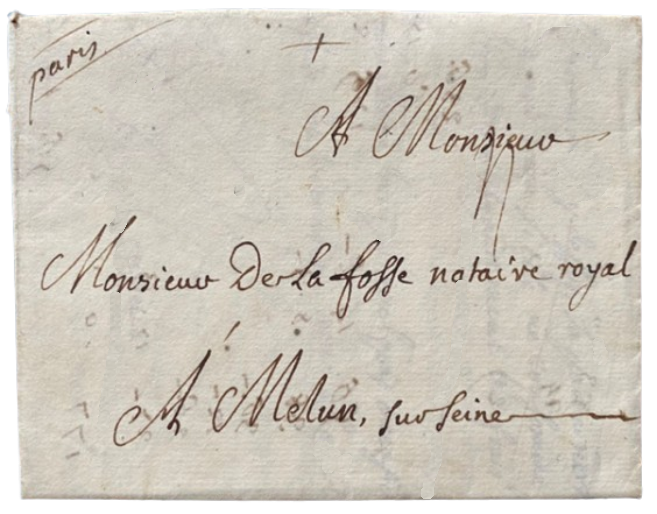 paris
A Monsieur
Monsieur De La fosse notaire royal
A Melun, sur seine